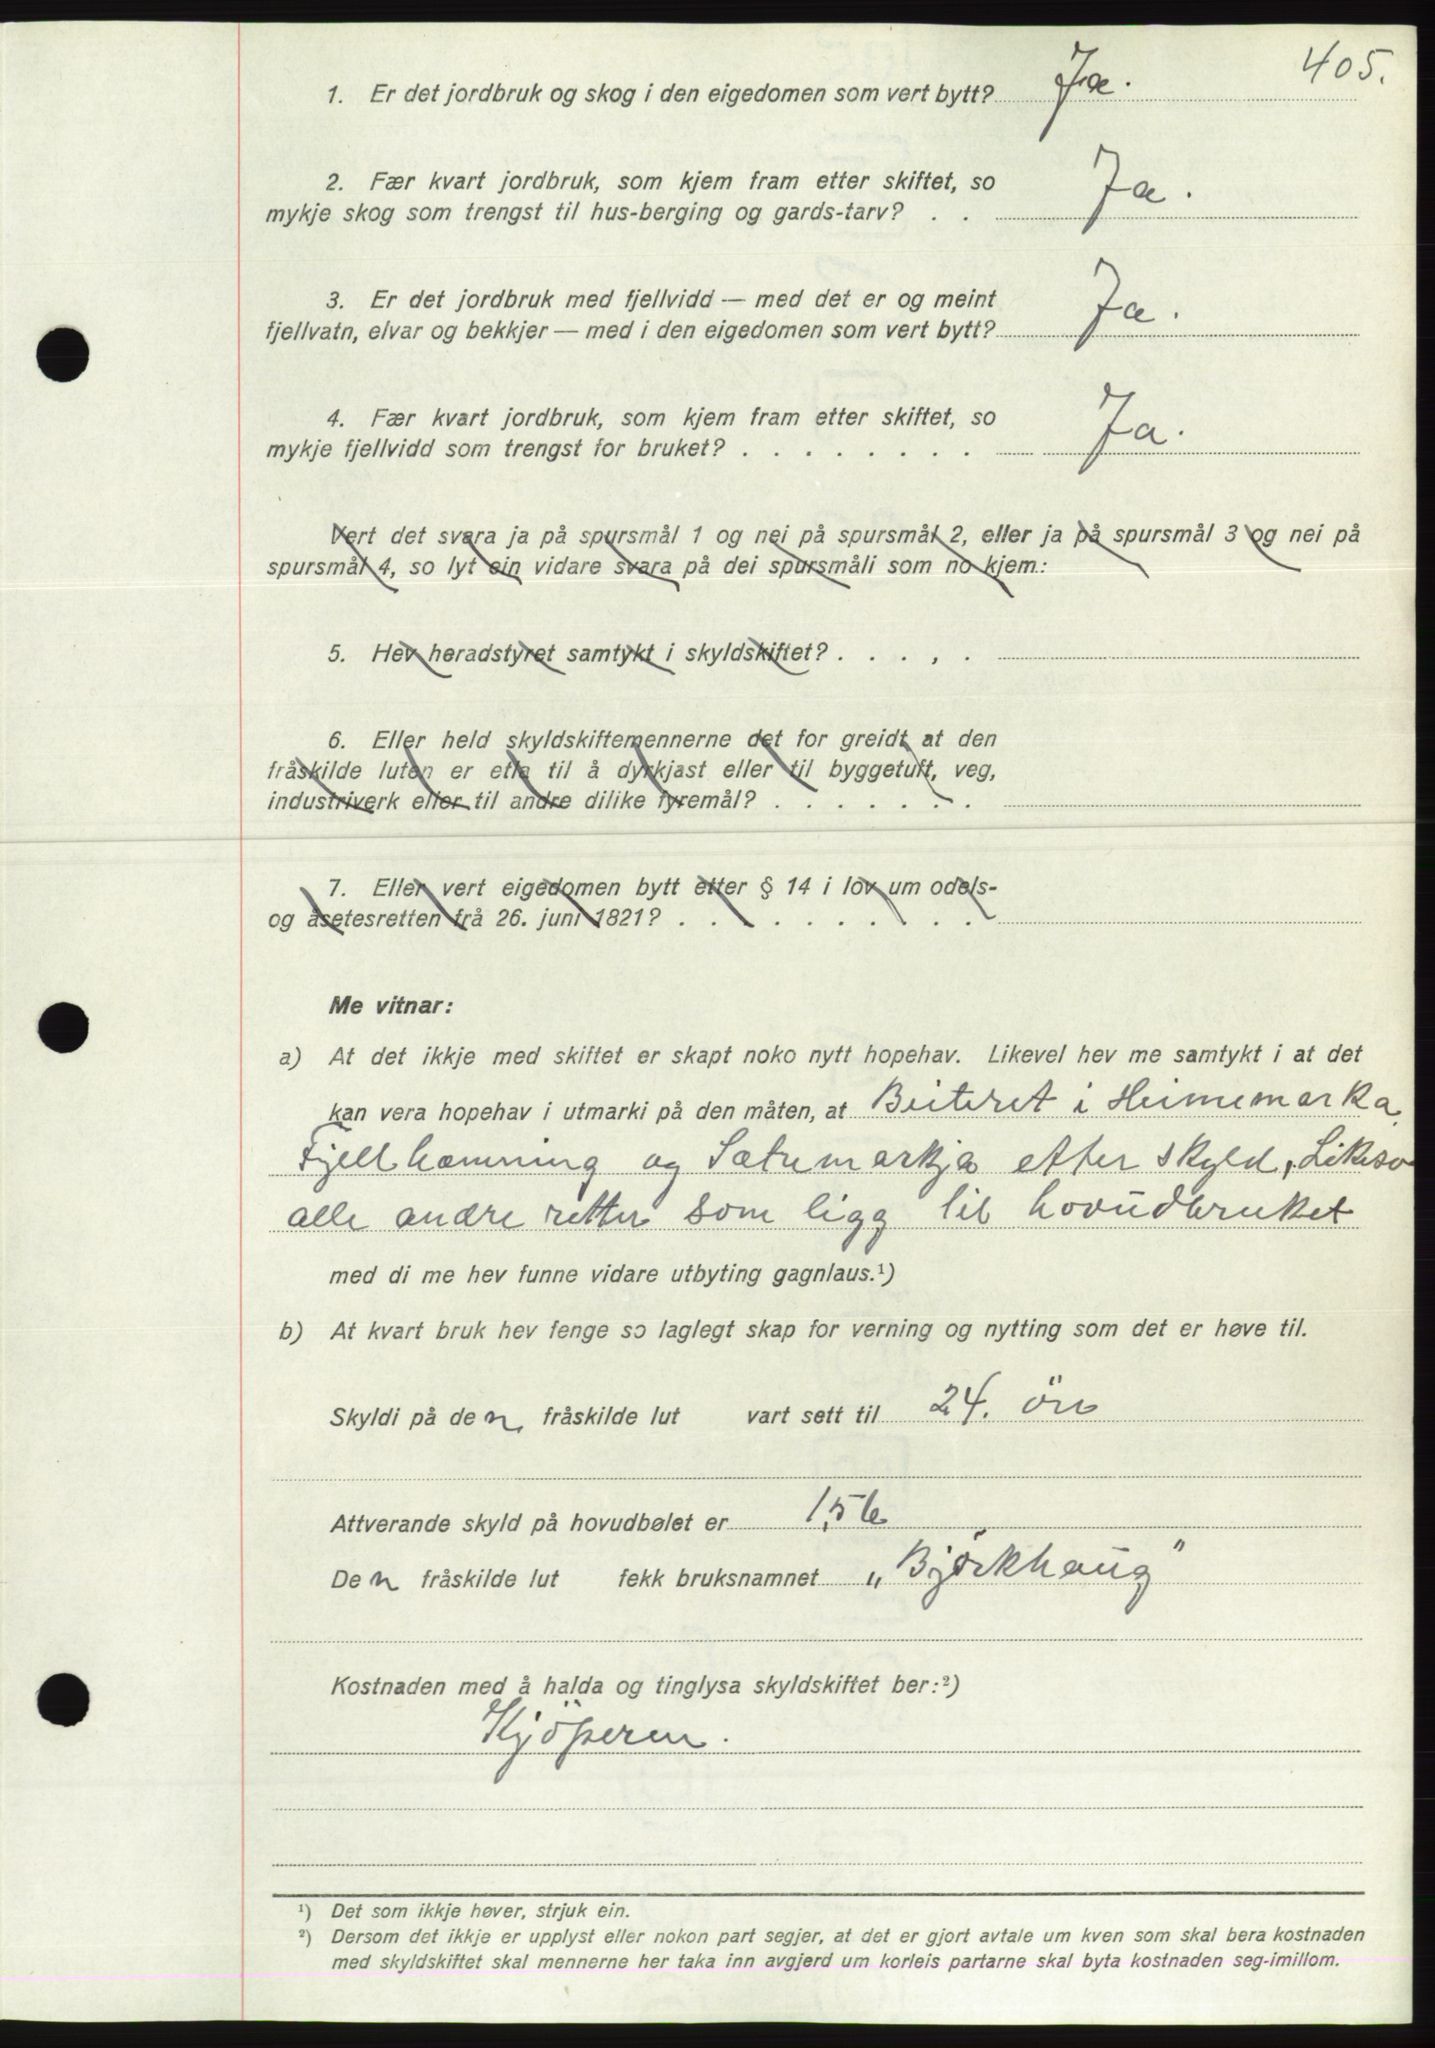 405.
1. Er det jordbruk og skog i den eigedomen som vert bytt? Ja.
2. Fær kvart jordbruk, som kjem fram etter skiftet, so
mykje skog som trengst til hus-berging og gards-tarv? . . Ja.
3. Er det jordbruk med fjellvidd — med det er og meint
fjellvatn, elvar og bekkjer — med i den eigedomen som vert bytt? Ja.
4. Fær kvart jordbruk, som kjem fram etter skiftet, so
mykje fjellvidd som trengst for bruket? . . . . . . . . Ja.
Vert det svara ja på spursmål 1 og nei på spursmål 2, eller ja på spursmål 3 og nei på
spursmål 4, so lyt ein vidare svara på dei spursmåli som no kjem:
5. Hev heradstyret samtykt i skyldskiftet? . . . , .
6. Eller held skyldskiftemennerne det for greidt at den
fråskilde luten er etla til å dyrkjast eller til byggetuft, veg,
industriverk eller til andre dilike fyremål? . . . . . . .
7. Eller vert eigedomen bytt etter § 14 i lov um odels-
og åsetesretten frå 26. juni 1821? . . . . . . . . . .
Me vitnar:
a) At det ikkje med skiftet er skapt noko nytt hopehav. Likevel hev me samtykt i at det
kan vera hopehav i utmarki på den måten, at Beiteret i Heimemarka,
Fjellhamning og Sætremarkja etter skyld, Likeso
alle andre retter som ligg til hovudbruket
med di me hev funne vidare utbyting gagnlaus.¹)
b) At kvart bruk hev fenge so laglegt skap for verning og nytting som det er høve til.
Skyldi på den fråskilde lut vart sett til 24. öre
Attverande skyld på hovudbølet er 1,56
Den fråskilde lut fekk bruksnamnet „Björkhaug"
Kostnaden med å halda og tinglysa skyldskiftet ber:²)
Kjöperen.
¹) Det som ikkje høver, strjuk ein.
²) Dersom det ikkje er upplyst eller nokon part segjer, at det er gjort avtale um kven som skal bera kostnaden
med skyldskiftet skal mennerne her taka inn avgjerd um korleis partarne skal byta kostnaden seg-imillom.